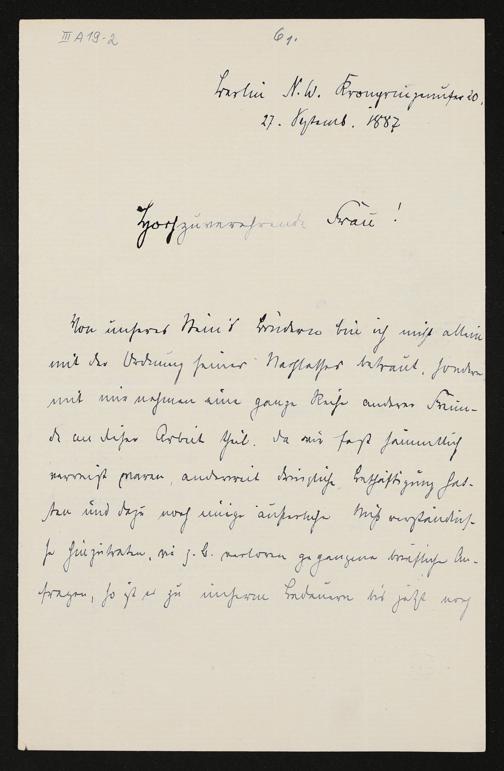 III A 19-2
61.
Berlin N.W. Kronprinzenufer 20.
27. Septemb. 1887
Hochzuverehrende Frau!
Von unseres Stein's Brüdern bin ich nicht allein
mit der Ordnung seines Nachlasses betraut, sondern
mit mir nehmen eine ganze Reihe anderer Freun-
de an dieser Arbeit theil. Da wir fast sämmtlich
verreist waren, anderweit dringliche Beschäftigung hat-
ten und dazu noch einige äußerliche Mißverständnis-
se hinzutraten, wie z. B. verloren gegangene briefliche An-
fragen, so ist es zu unserem Bedauern bis jetzt noch